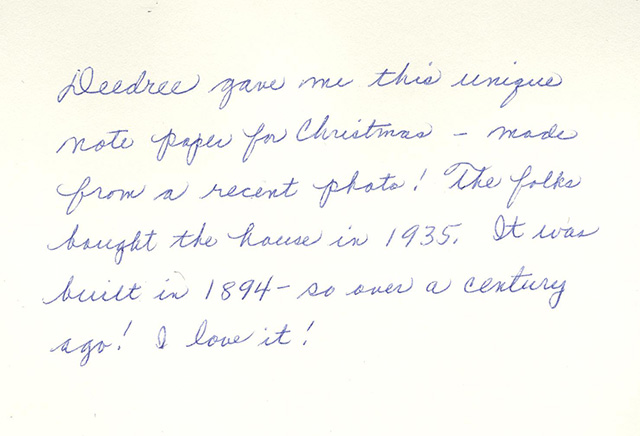 Deedree gave me this unique
note paper for Christmas – made
from a recent photo! The folks
bought the house in 1935. It was
built in 1894 – so over a century
ago! I love it!